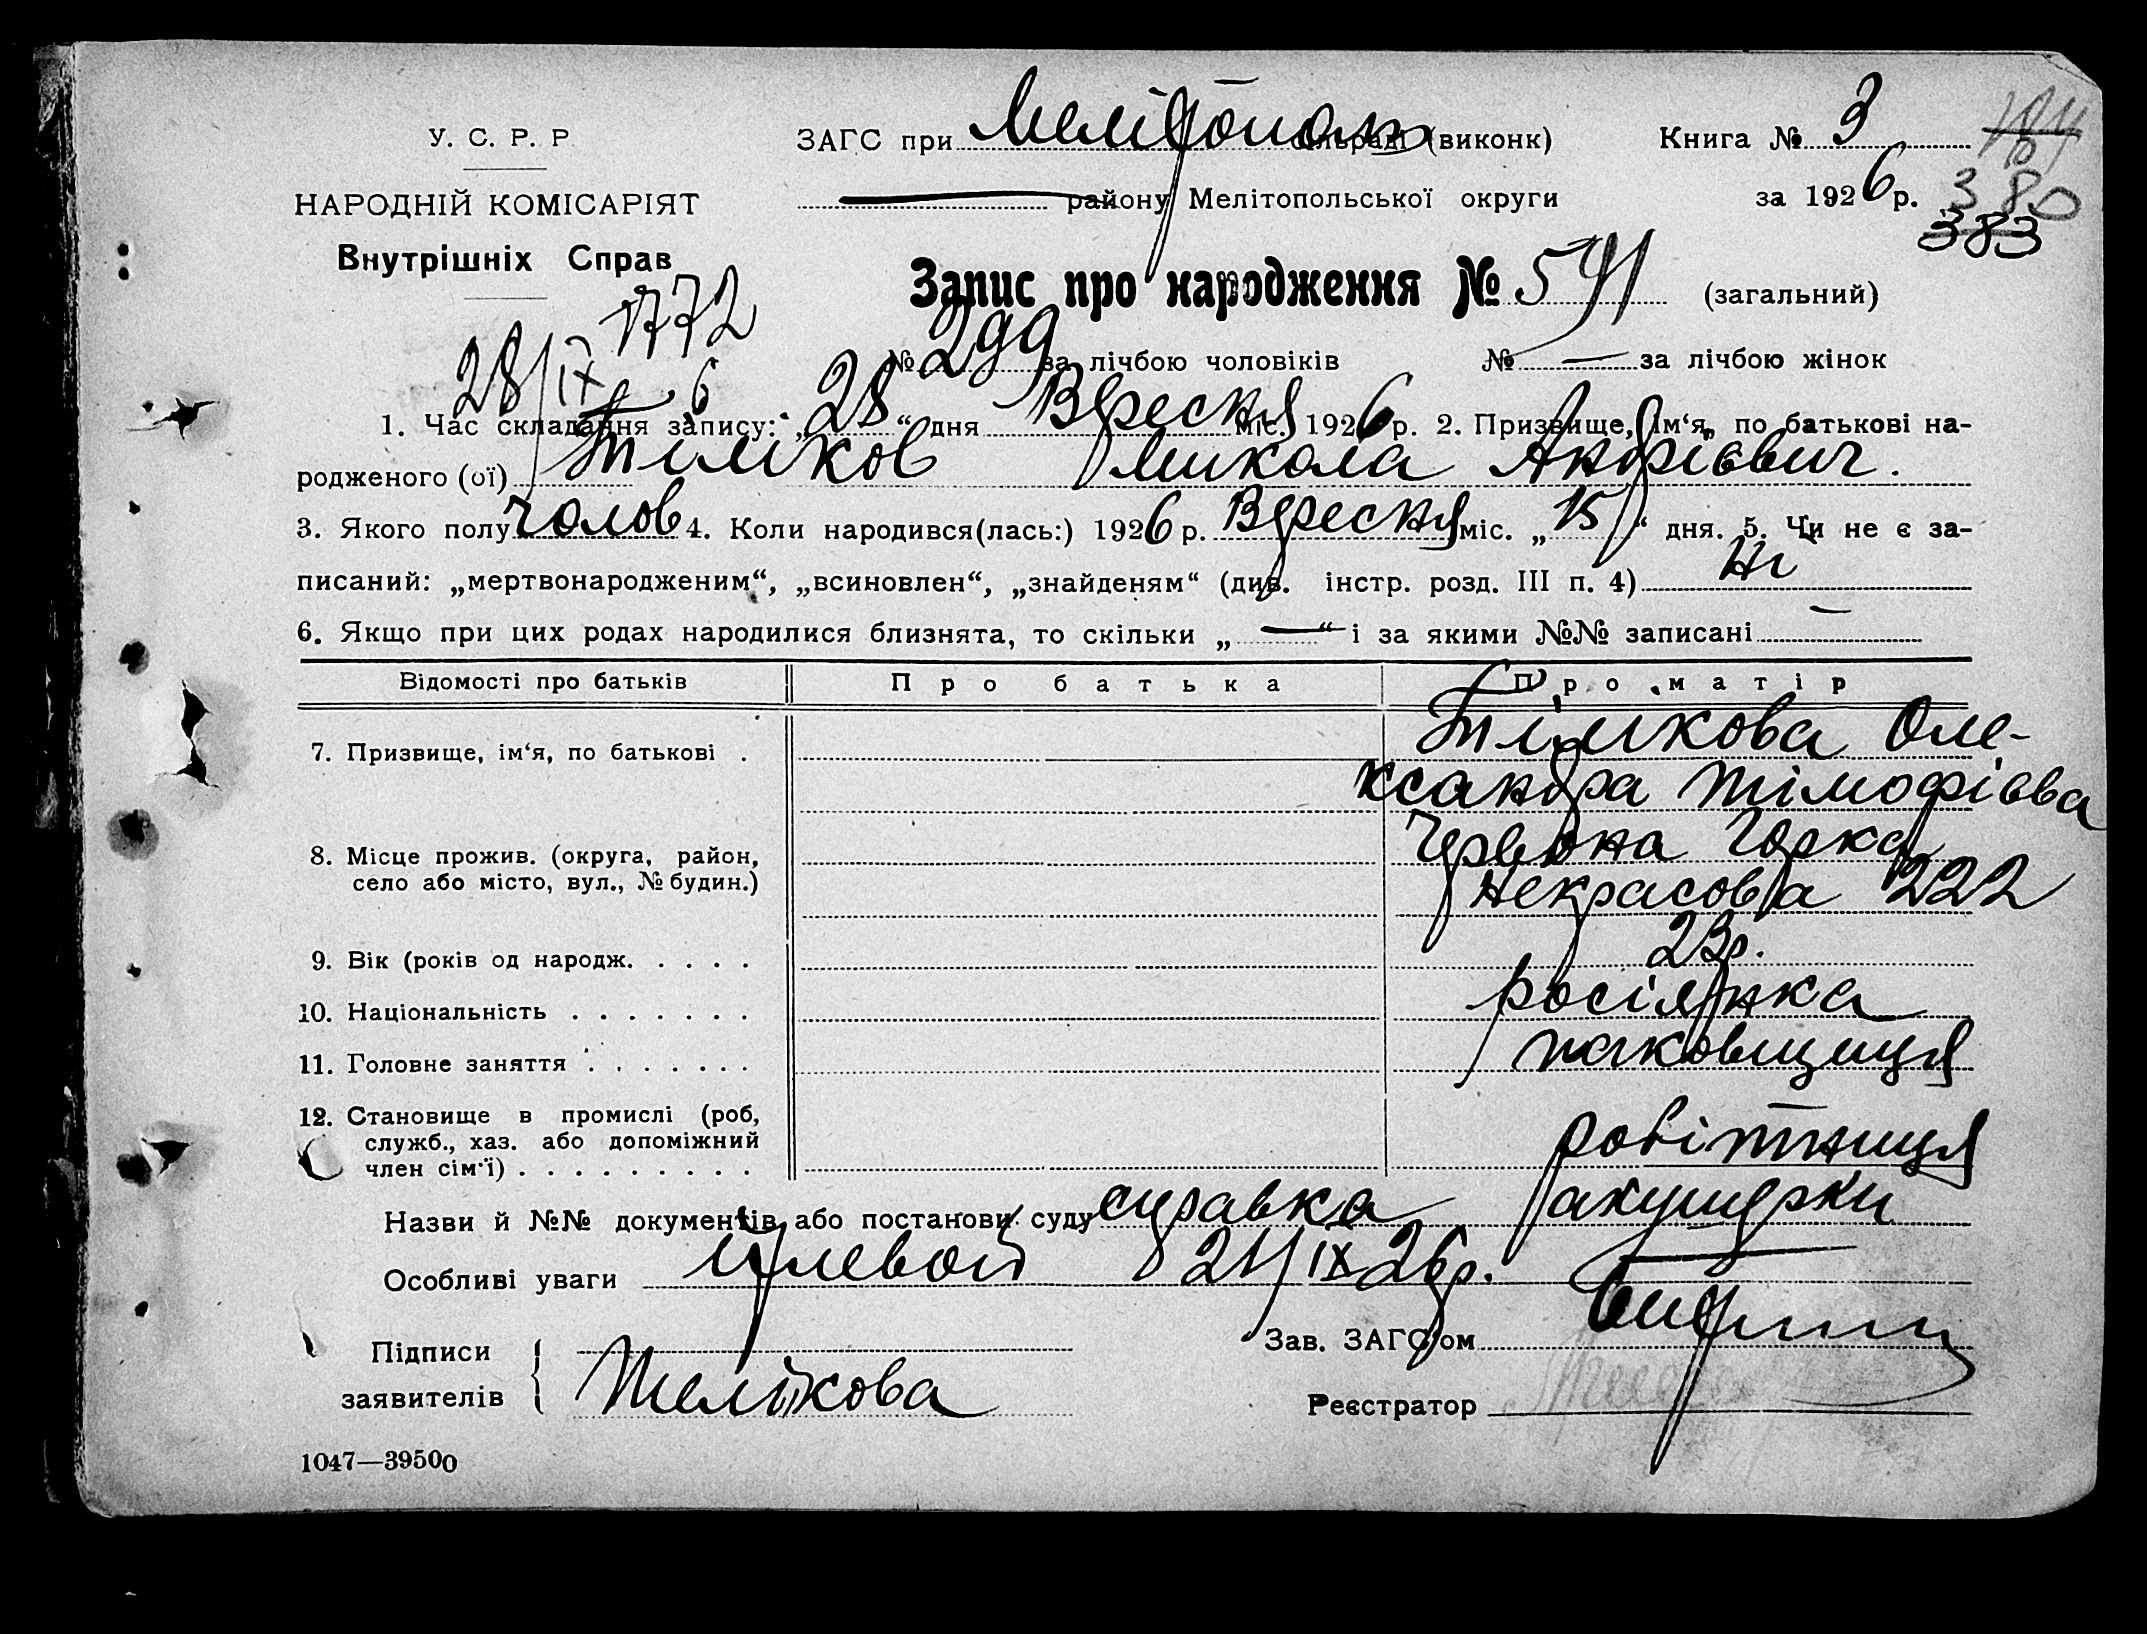 У. С. Р. Р.
НАРОДНІЙ КОМІСАРІЯТ
Внутрішніх Справ
ЗАГС при Мелітополь сільраді (виконк)
району Мелітопольської округи
Книга № 3
за 1926 р.
380
383
Запис про народження № 591 (загальний)
1772
28/IX 6
№ 299 за лічбою чоловіків № — за лічбою жінок
1. Час складання запису: „28“ дня Вересня міс. 1926 р. 2. Призвище, ім‘я, по батькові на-
родженого (ої) Теліков Микола Андрієвич.
3. Якого полу чолов 4. Коли народився(лась:) 1926 р. Вересня міс. „15“ дня. 5. Чи не є за-
писаний: „мертвонародженим“, „всиновлен“, „знайденям“ (див. інстр. розд. III п. 4) Ні
6. Якщо при цих родах народилися близнята, то скільки „—“ і за якими №№ записані —
Відомості про батьків Про батька Про матір
7. Призвище, ім‘я, по батькові . Олe-
ксандра Тімофієва
8. Місце прожив. (округа, район, Червона Горка
село або місто, вул., № будин.) Некрасова 222
9. Вік (років од народж. . . . . 23р.
10. Національність . . . . . . . росіянка
11. Головне заняття . . . . . . . паковщиця
12. Становище в промислі (роб,
служб., хаз. або допоміжний
член сім‘ї) . . . . . . . . . робітниця
Назви й №№ документів або постанови суду справка акушерки
Особливі уваги 21/IX 26р.
Підписи
заявителів Телікова
Зав. ЗАГС‘ом
Реєстратор
1047—39500